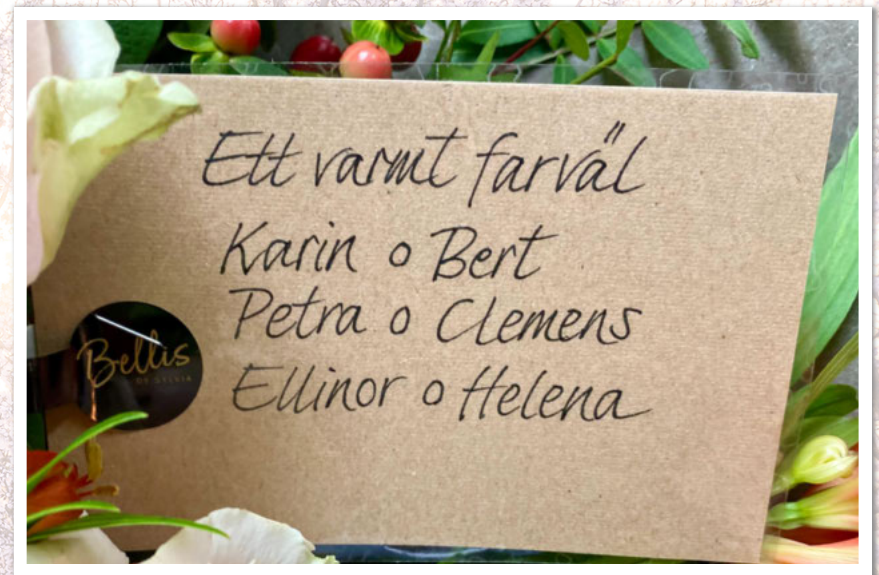 Ett varmt farväl
Karin o Bert
Petra o Clemens
Ellinor o Helena
Bellis
BY SYLVIA